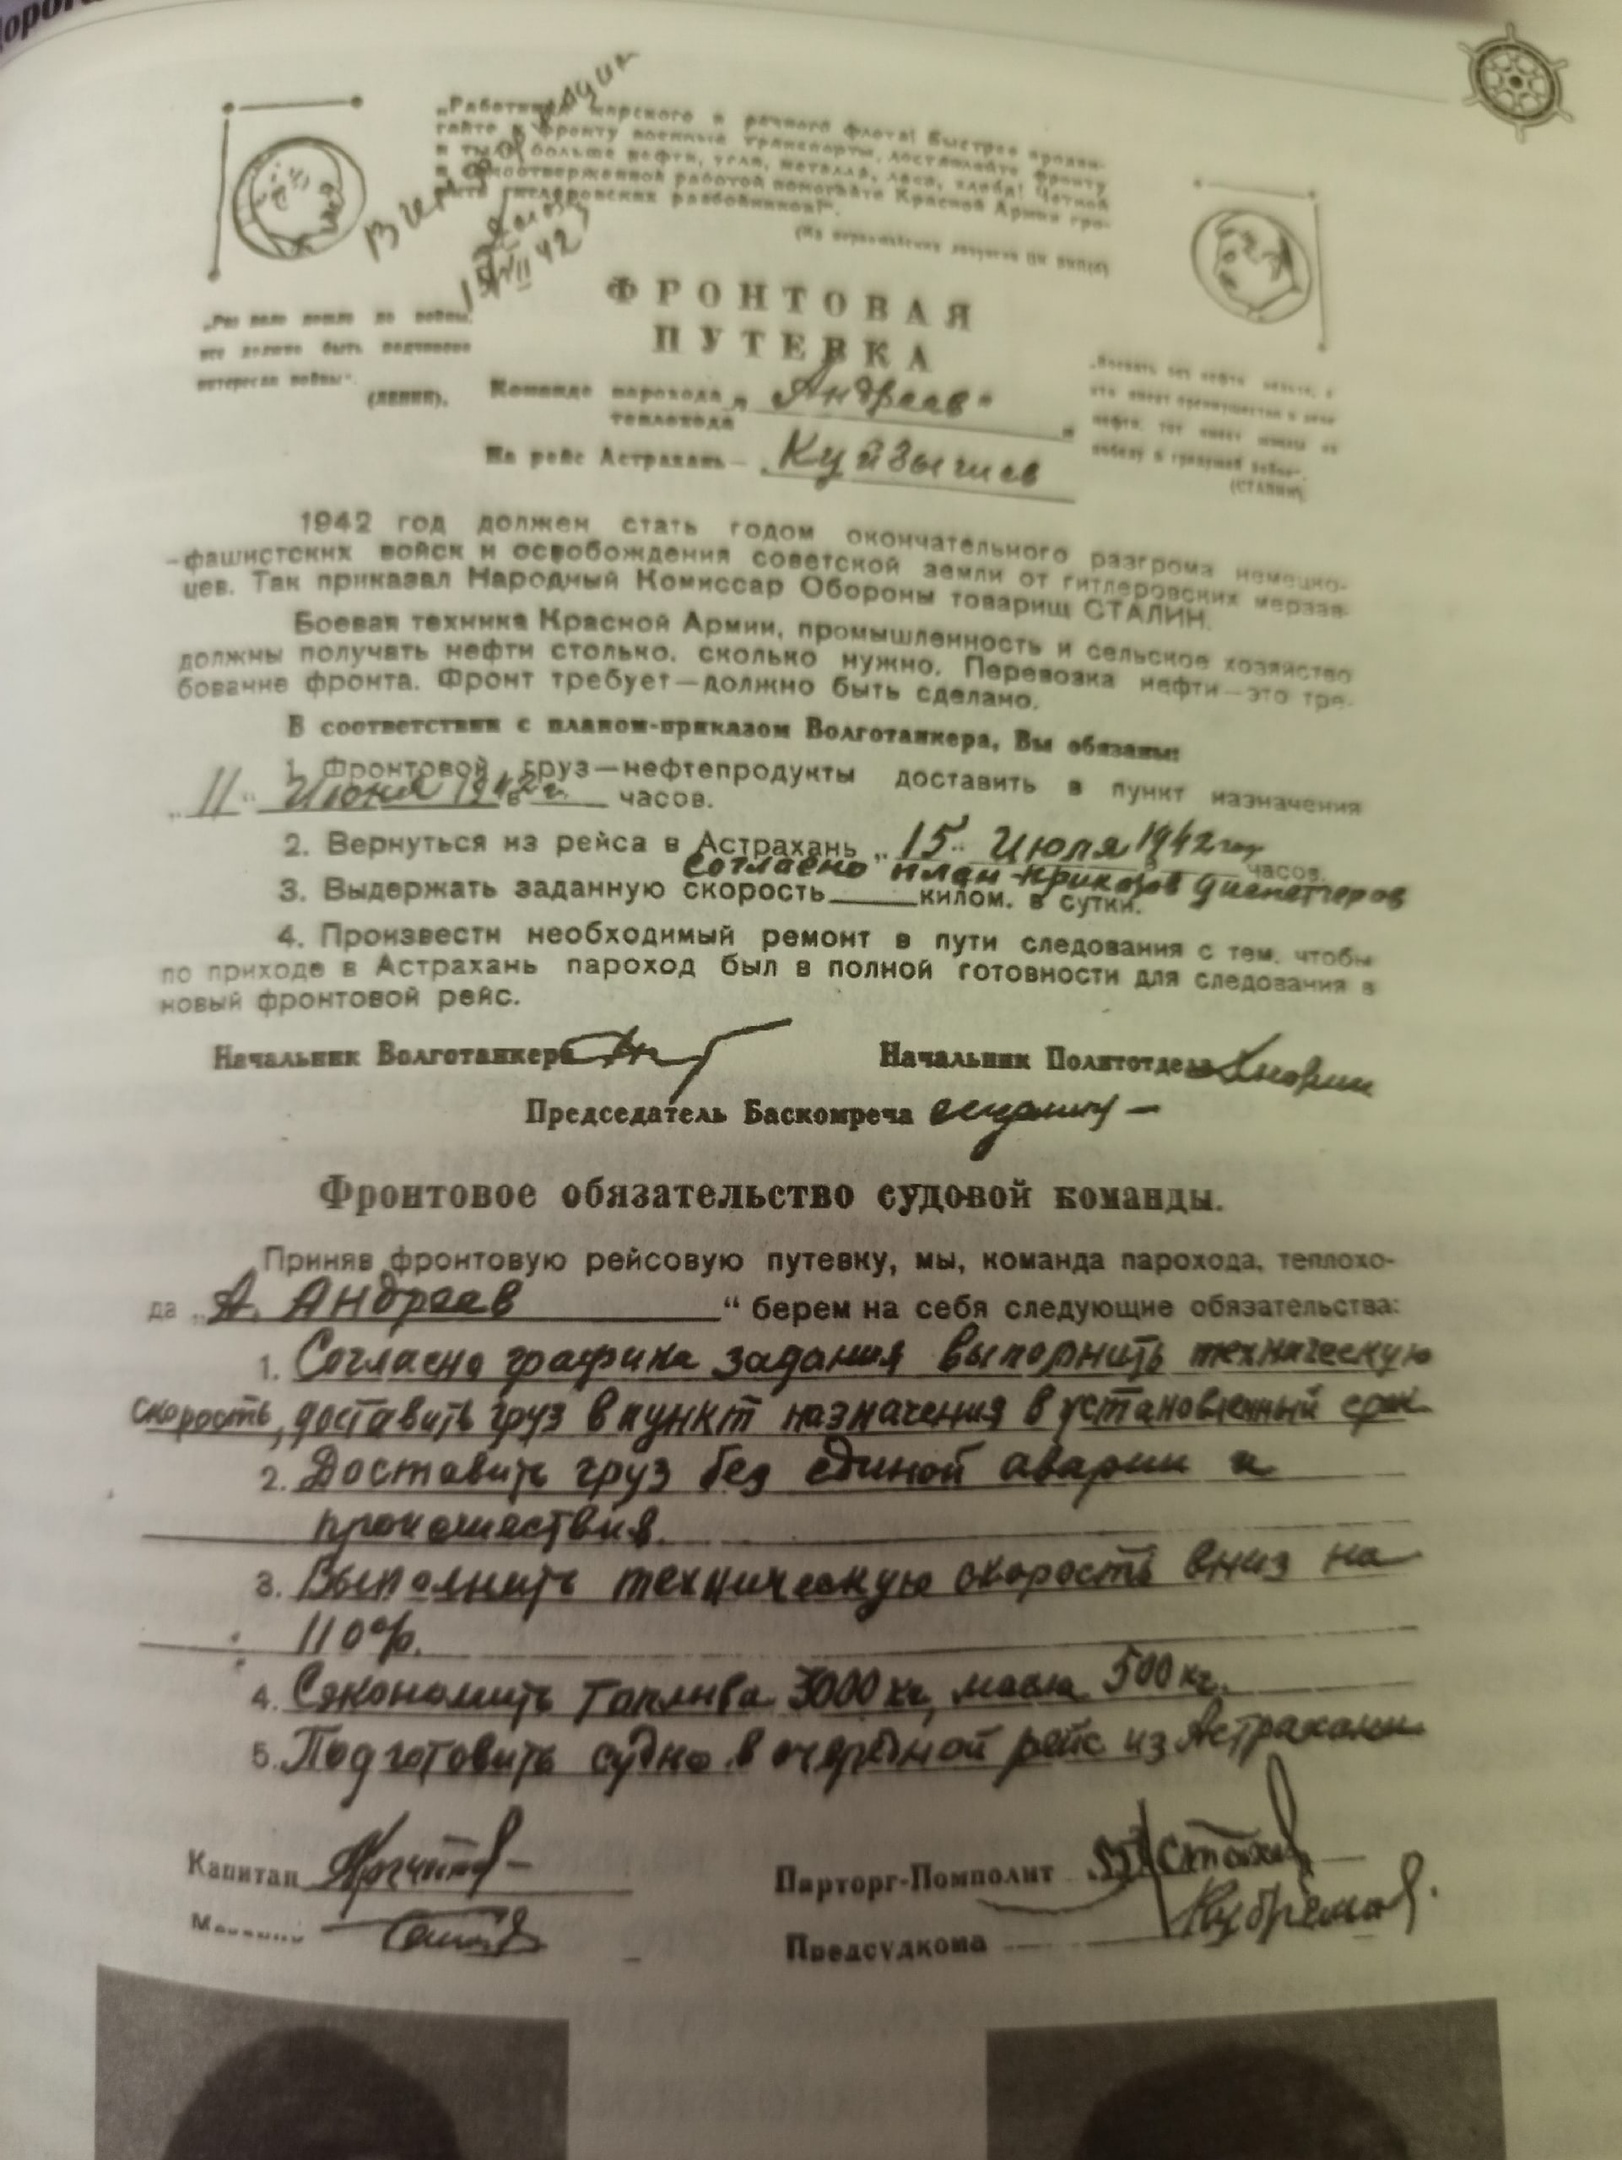 Дорог
„Работники морского и речного флота! Быстрее продви-
гайте к фронту военные транспорты, доставляйте фронту
и тылу больше нефти, угля, металла, леса, хлеба! Четкой
и самоотверженной работой помогайте Красной Армии гро-
мить гитлеровских разбойников!“.
(Из первомайских лозунгов ЦК ВКП(б)
42
ФРОНТОВАЯ
ПУТЕВКА
„Раз дело дошло до войны,
все должно быть подчинено
интересам войны“.
(ЛЕНИН).
нефти, тот имеет
победу в грядущей войне“.
(СТАЛИН)
Команде парохода „Андреев“
теплохода
На рейс Астрахань— Куйбышев
1942 год должен стать годом окончательного разгрома немецко-
-фашистских войск и освобождения советской земли от гитлеровских мерзав-
цев. Так приказал Народный Комиссар Обороны товарищ СТАЛИН.
Боевая техника Красной Армии, промышленность и сельское хозяйство
должны получать нефти столько, сколько нужно. Перевозка нефти—это тре-
бование фронта. Фронт требует—должно быть сделано.
В соответствии с планом-приказом Волготанкера, Вы обязаны:
1. Фронтовой груз—нефтепродукты доставить в пункт назначения
„11“ Июня 1942 г. в часов.
2. Вернуться из рейса в Астрахань „15“ Июля 1942 году в часов.
согласно план-приказов диспетчеров
3. Выдержать заданную скорость килом. в сутки.
4. Произвести необходимый ремонт в пути следования с тем, чтобы
по приходе в Астрахань пароход был в полной готовности для следования в
новый фронтовой рейс.
Начальник Волготанкера Начальник Политотдела
Председатель Баскомреча
Фронтовое обязательство судовой команды.
Приняв фронтовую рейсовую путевку, мы, команда парохода, теплохо-
да „А. Андреев“ берем на себя следующие обязательства:
1. Согласно графика задания выполнить техническую
скорость, доставить груз в пункт назначения в установленный срок
2. Доставить груз без единой аварии и
происшествия.
3. Выполнить техническую скорость вниз на
110%.
4. Сэкономить топлива 3000 кг, масла 500 кг.
5. Подготовить судно в очередной рейс из Астрахани
Капитан Парторг-Помполит
Предсудкома